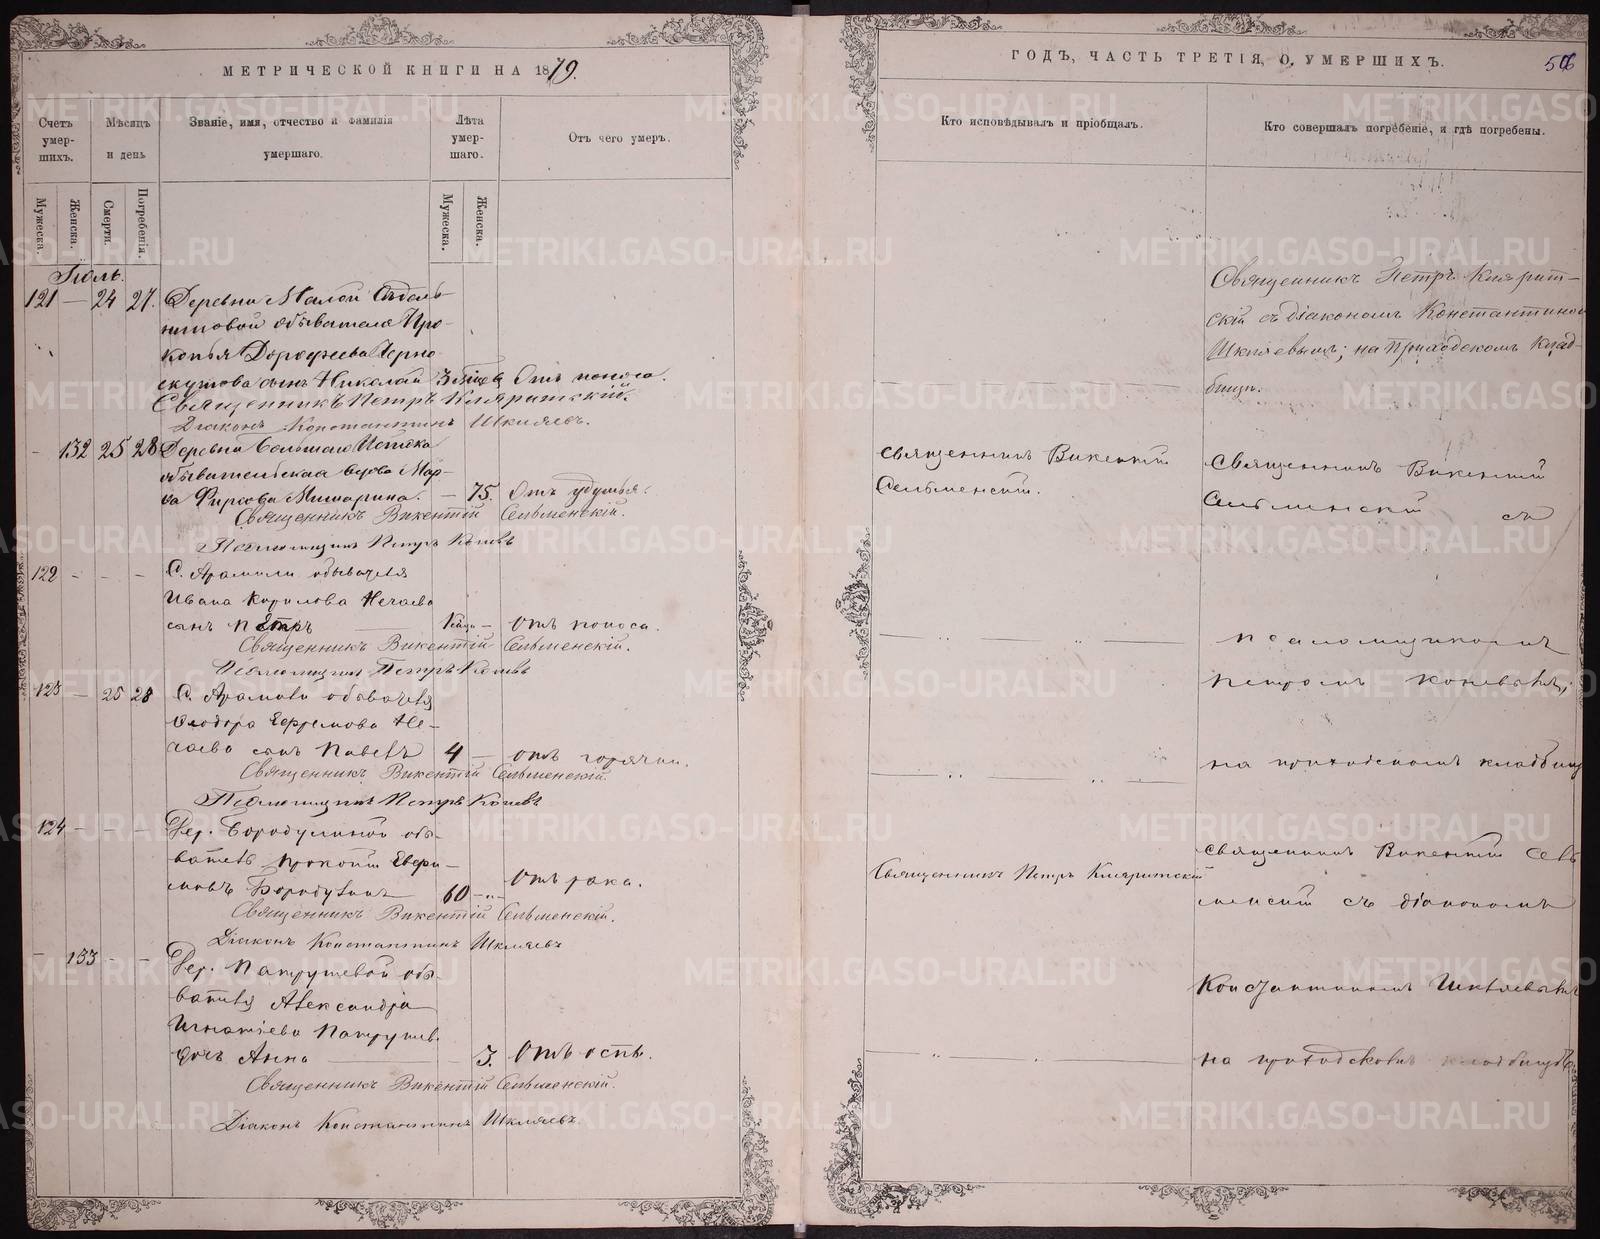 МЕТРИЧЕСКОЙ КНИГИ НА 1879.
Счетъ умер-шихъ.
Мѣсяцъ и день
Званіе, имя, отчество и фамилія умершаго.
Лѣта умер-шаго.
Отъ чего умеръ.
Мужеска.
Женска.
Смерти.
Погребенія.
Мужеска.
Женска.
Іюль.
121 — 24 27. Деревни Малой
обывателя Про-
копья Дорофеева Черно
скутова сынъ Николай 3 Отъ поноса.
Священникъ Петръ
Діаконъ Константинъ Шкляевъ.
- 132 25 28 Деревни Большаго Истока
обывательская вдова Мар-
ѳа Фирсова Мишарина. — 75. Отъ удушья.
Священникъ Викентій Сельменскій.
Псаломщикъ Петръ Коневъ
122 - - - С. Арамили обывателя
Ивана Кирилова Нечаева
сынъ Петръ — отъ поноса.
Священникъ Викентій Сельменскій.
Псаломщикъ Петръ Коневъ
123 — 25 28 С. Арамили обывателя
Ефремова Не-
чаева сынъ Павелъ 4 — отъ горячки.
Священникъ Викентій Сельменскій.
Псаломщикъ Петръ Коневъ
124 - - - Дер. Бородулиной обы-
ватель Прокопій
Бородулинъ 60 - Отъ рака.
Священникъ Викентій Сельменскій.
Діаконъ Константинъ Шкляевъ
- 133 - - Дер. Патрушевой обы-
вателя Александра
Игнатіева Патрушев.
дочь Анна — 3. Отъ оспы.
Священникъ Викентій Сельменскій.
Діаконъ Константинъ Шкляевъ.
ГОДЪ, ЧАСТЬ ТРЕТІЯ, О УМЕРШИХЪ.
506
Кто исповѣдывалъ и пріобщалъ.
Кто совершалъ погребеніе, и гдѣ погребены.
Священникъ Петръ
скій съ діакономъ Константиномъ
Шкляевымъ; на Приходскомъ Клад-
бищѣ.
священникъ Викентій
Сельменскій.
Священникъ Викентій
Сельменскій съ
псаломщикомъ
Петромъ Коневымъ;
на приходскомъ кладбищѣ
Священникъ Петръ
священникъ Викентій Сель
менскій съ діакономъ
Константиномъ Шкляевымъ
на приходскомъ кладбищѣ
METRIKI.GASO-URAL.RU